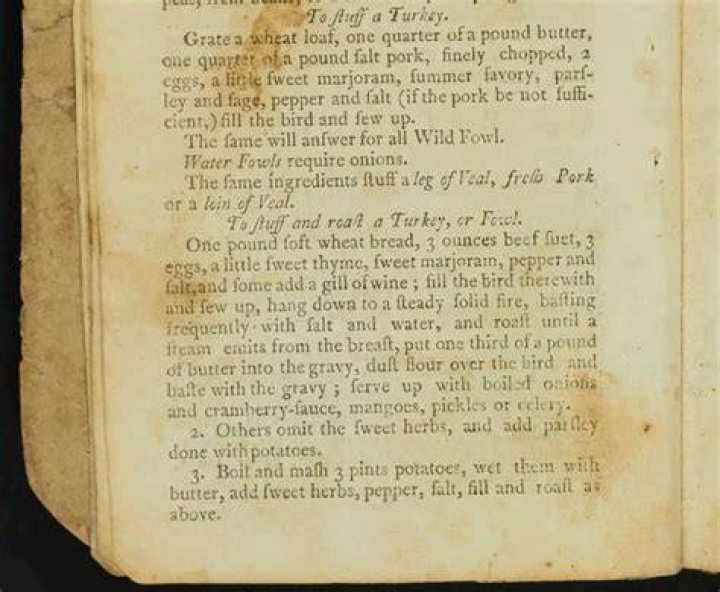 To ſtuff a Turkey.
Grate a wheat loaf, one quarter of a pound butter,
one quarter of a pound ſalt pork, finely chopped, 2
eggs, a little ſweet marjoram, ſummer ſavory, parſ-
ley and ſage, pepper and ſalt (if the pork be not ſuffi-
cient,) fill the bird and ſew up.
The ſame will anſwer for all Wild Fowl.
Water Fowls require onions.
The ſame ingredients ſtuff a leg of Veal, freſh Pork
or a loin of Veal.
To ſtuff and roaſt a Turkey, or Fowl.
One pound ſoft wheat bread, 3 ounces beef ſuet, 3
eggs, a little ſweet thyme, ſweet marjoram, pepper and
ſalt, and ſome add a gill of wine ; fill the bird therewith
and ſew up, hang down to a ſteady ſolid fire, baſting
frequently with ſalt and water, and roaſt until a
ſteam emits from the breaſt, put one third of a pound
of butter into the gravy, duſt flour over the bird and
baſte with the gravy ; ſerve up with boiled onions
and cramberry-ſauce, mangoes, pickles or celery.
2. Others omit the ſweet herbs, and add parſley
done with potatoes.
3. Boil and maſh 3 pints potatoes, wet them with
butter, add ſweet herbs, pepper, ſalt, fill and roaſt as
above.